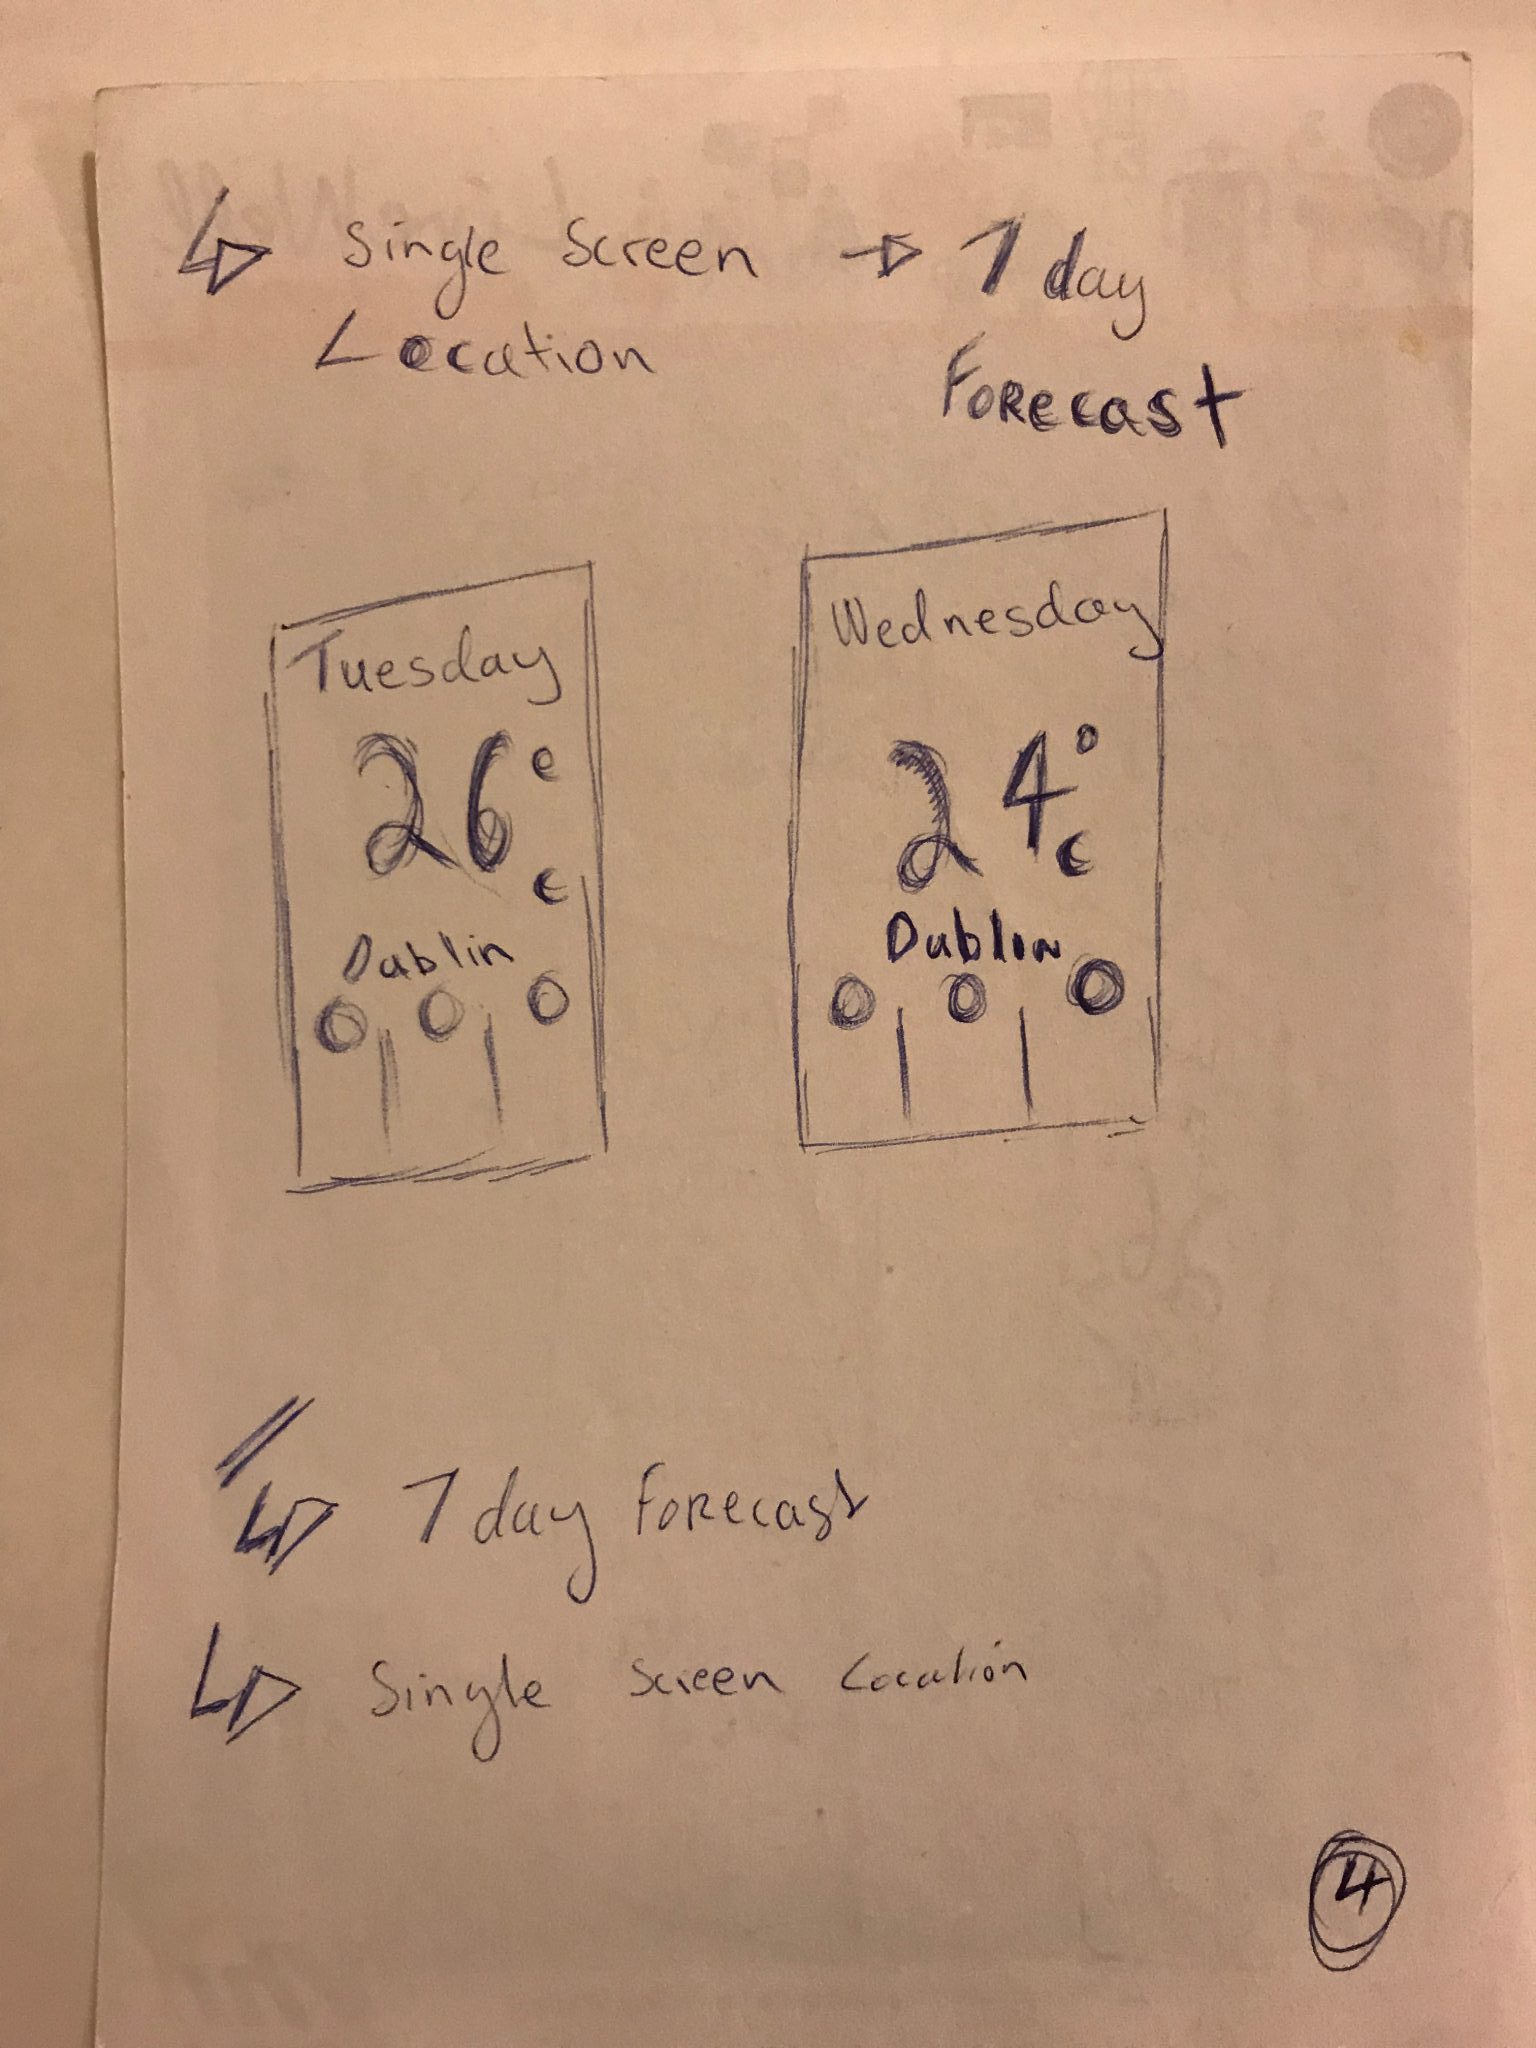 Single Screen → 7 day
Location Forecast
Tuesday
26°
c
Dublin
Wednesday
24°
c
Dublin
7 day Forecast
Single Screen Location
4